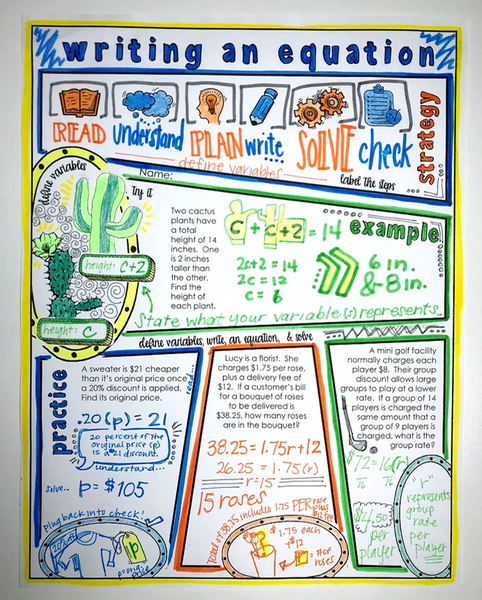 writing an equation
READ understand PLAN write SOLVE check
define variables
label the steps
strategy
define variables
Name:
try it
Two cactus
plants have
a total
height of 14
inches. One
is 2 inches
taller than
the other.
Find the
height of
each plant.
c + c+2 = 14
2c+2 = 14
2c = 12
c = 6
example
6 in.
& 8 in.
height: c+2
height: c
State what your variable(s) represents.
define variables, write, an equation, & solve
practice
A sweater is $21 cheaper
than it's original price once
a 20% discount is applied.
Find its original price.
read...
.20(p) = 21
20 percent of the
original price (p)
is a 21 discount.
understand...
solve..
p = $105
plug back into check!
p
p=orig.
price
Lucy is a florist. She
charges $1.75 per rose,
plus a delivery fee of
$12. If a customer's bill
for a bouquet of roses
to be delivered is
$38.25, how many roses
are in the bouquet?
38.25 = 1.75r+12
26.25 = 1.75(r)
r=15
15 roses
Total of 38.25 includes 1.75 PER rose
plus
$1.75 each
+$12
= # of
roses
A mini golf facility
normally charges each
player $8. Their group
discount allows large
groups to play at a lower
rate. If a group of 14
players is charged the
same amount that a
group of 9 players is
charged, what is the
group rate?
per
player
"r"
represents
group
rate
per
player